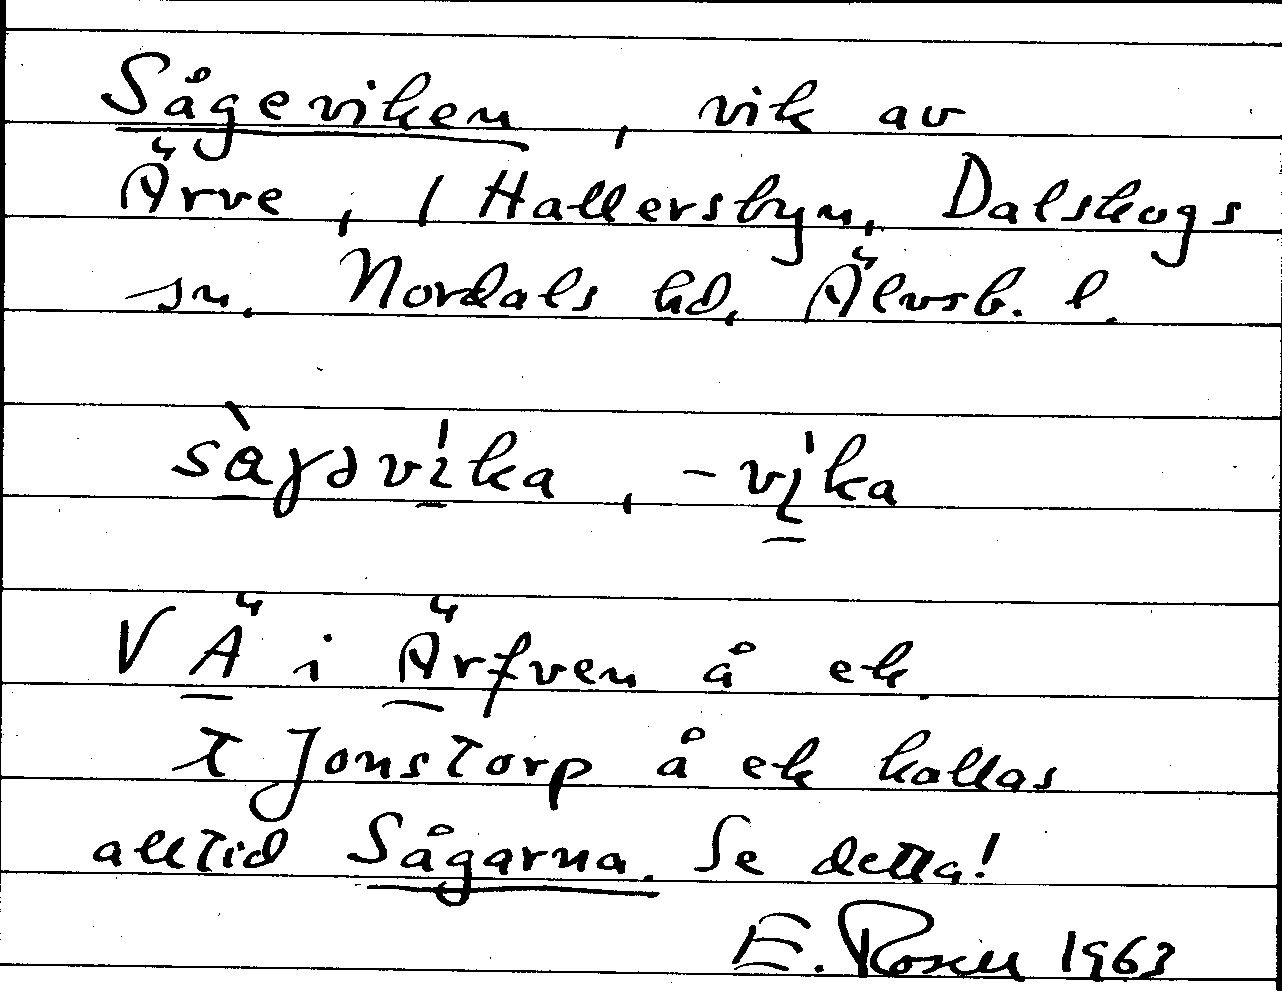 Sågeviken, vik av
Ärve, 1 Hallersbyn, Dalskogs
sn. Nordals hd, Älvsb. l.
sàɣəvi̱ka, -vi̱ka
V Ä i Ärfven å ek
t Jonstorp å ek kallas
alltid Sågarna. Se detta!
E. Rosell 1963